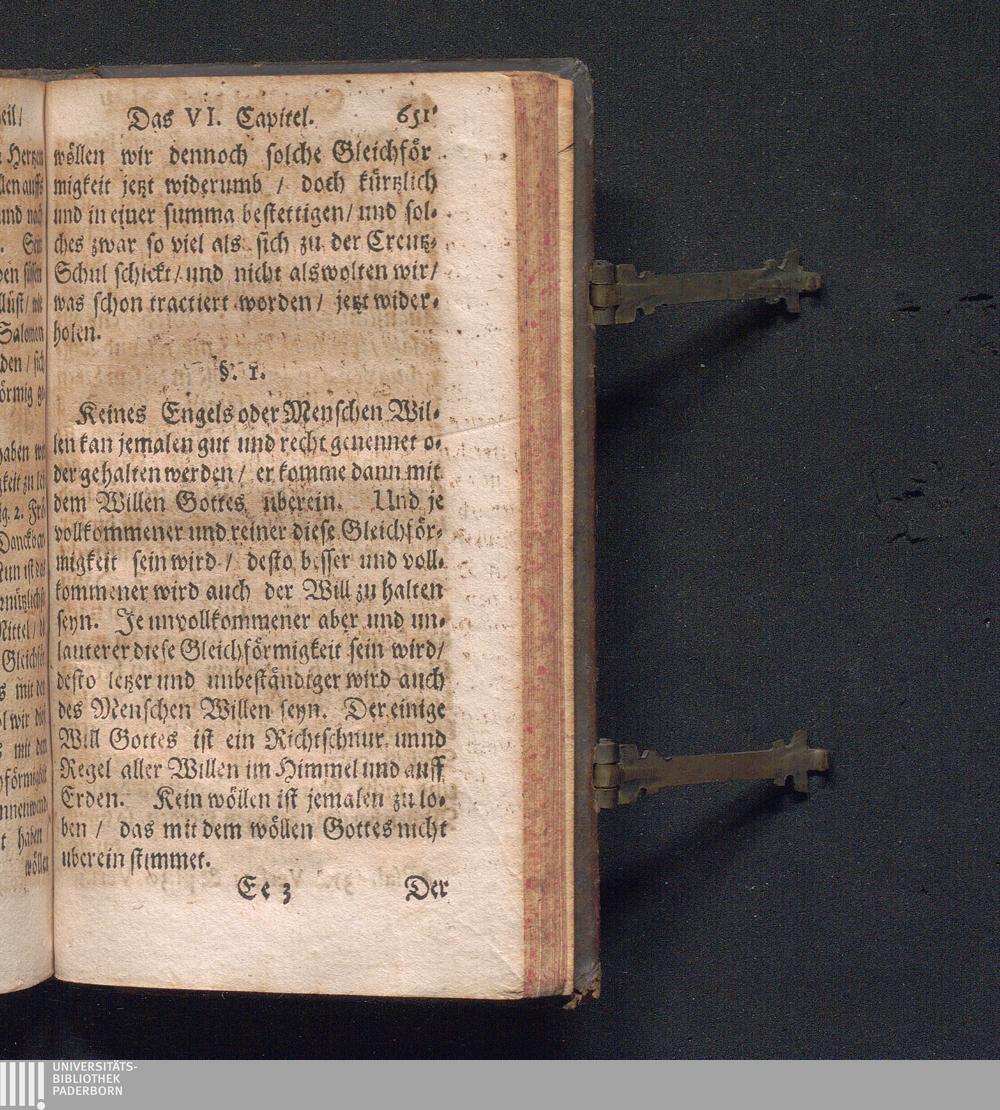 Das VI. Capitel. 651
wöllen wir dennoch solche Gleichför
migkeit jetzt widerumb / doch kürtzlich
und in einer summa bestettigen / und sol-
ches zwar so viel als sich zu der Creutz-
Schul schickt / und nicht als wolten wir /
was schon tractiert worden / jetzt wider-
holen.
§. 1.
Keines Engels oder Menschen Wil-
len kan jemalen gut und recht genennet o-
der gehalten werden / er komme dann mit
dem Willen Gottes uberein. Und je
vollkommener und reiner diese Gleichför-
migkeit sein wird / desto besser und voll-
kommener wird auch der Will zu halten
seyn. Je unvollkommener aber und un-
lauterer diese Gleichförmigkeit sein wird /
desto letzer und unbeständiger wird auch
des Menschen Willen seyn. Der einige
Will Gottes ist ein Richtschnur unnd
Regel aller Willen im Himmel und auff
Erden. Kein wöllen ist jemalen zu lo-
ben / das mit dem wöllen Gottes nicht
uberein stimmet.
Ee 3 Der
eil /
Hertzen
len auffs
und
Sein
den
Salomon
den / sich
örmig
haben
2.
Nun ist
Mittel /
mit der
wir
mit
haben
wöllen
UNIVERSITÄTS-
BIBLIOTHEK
PADERBORN